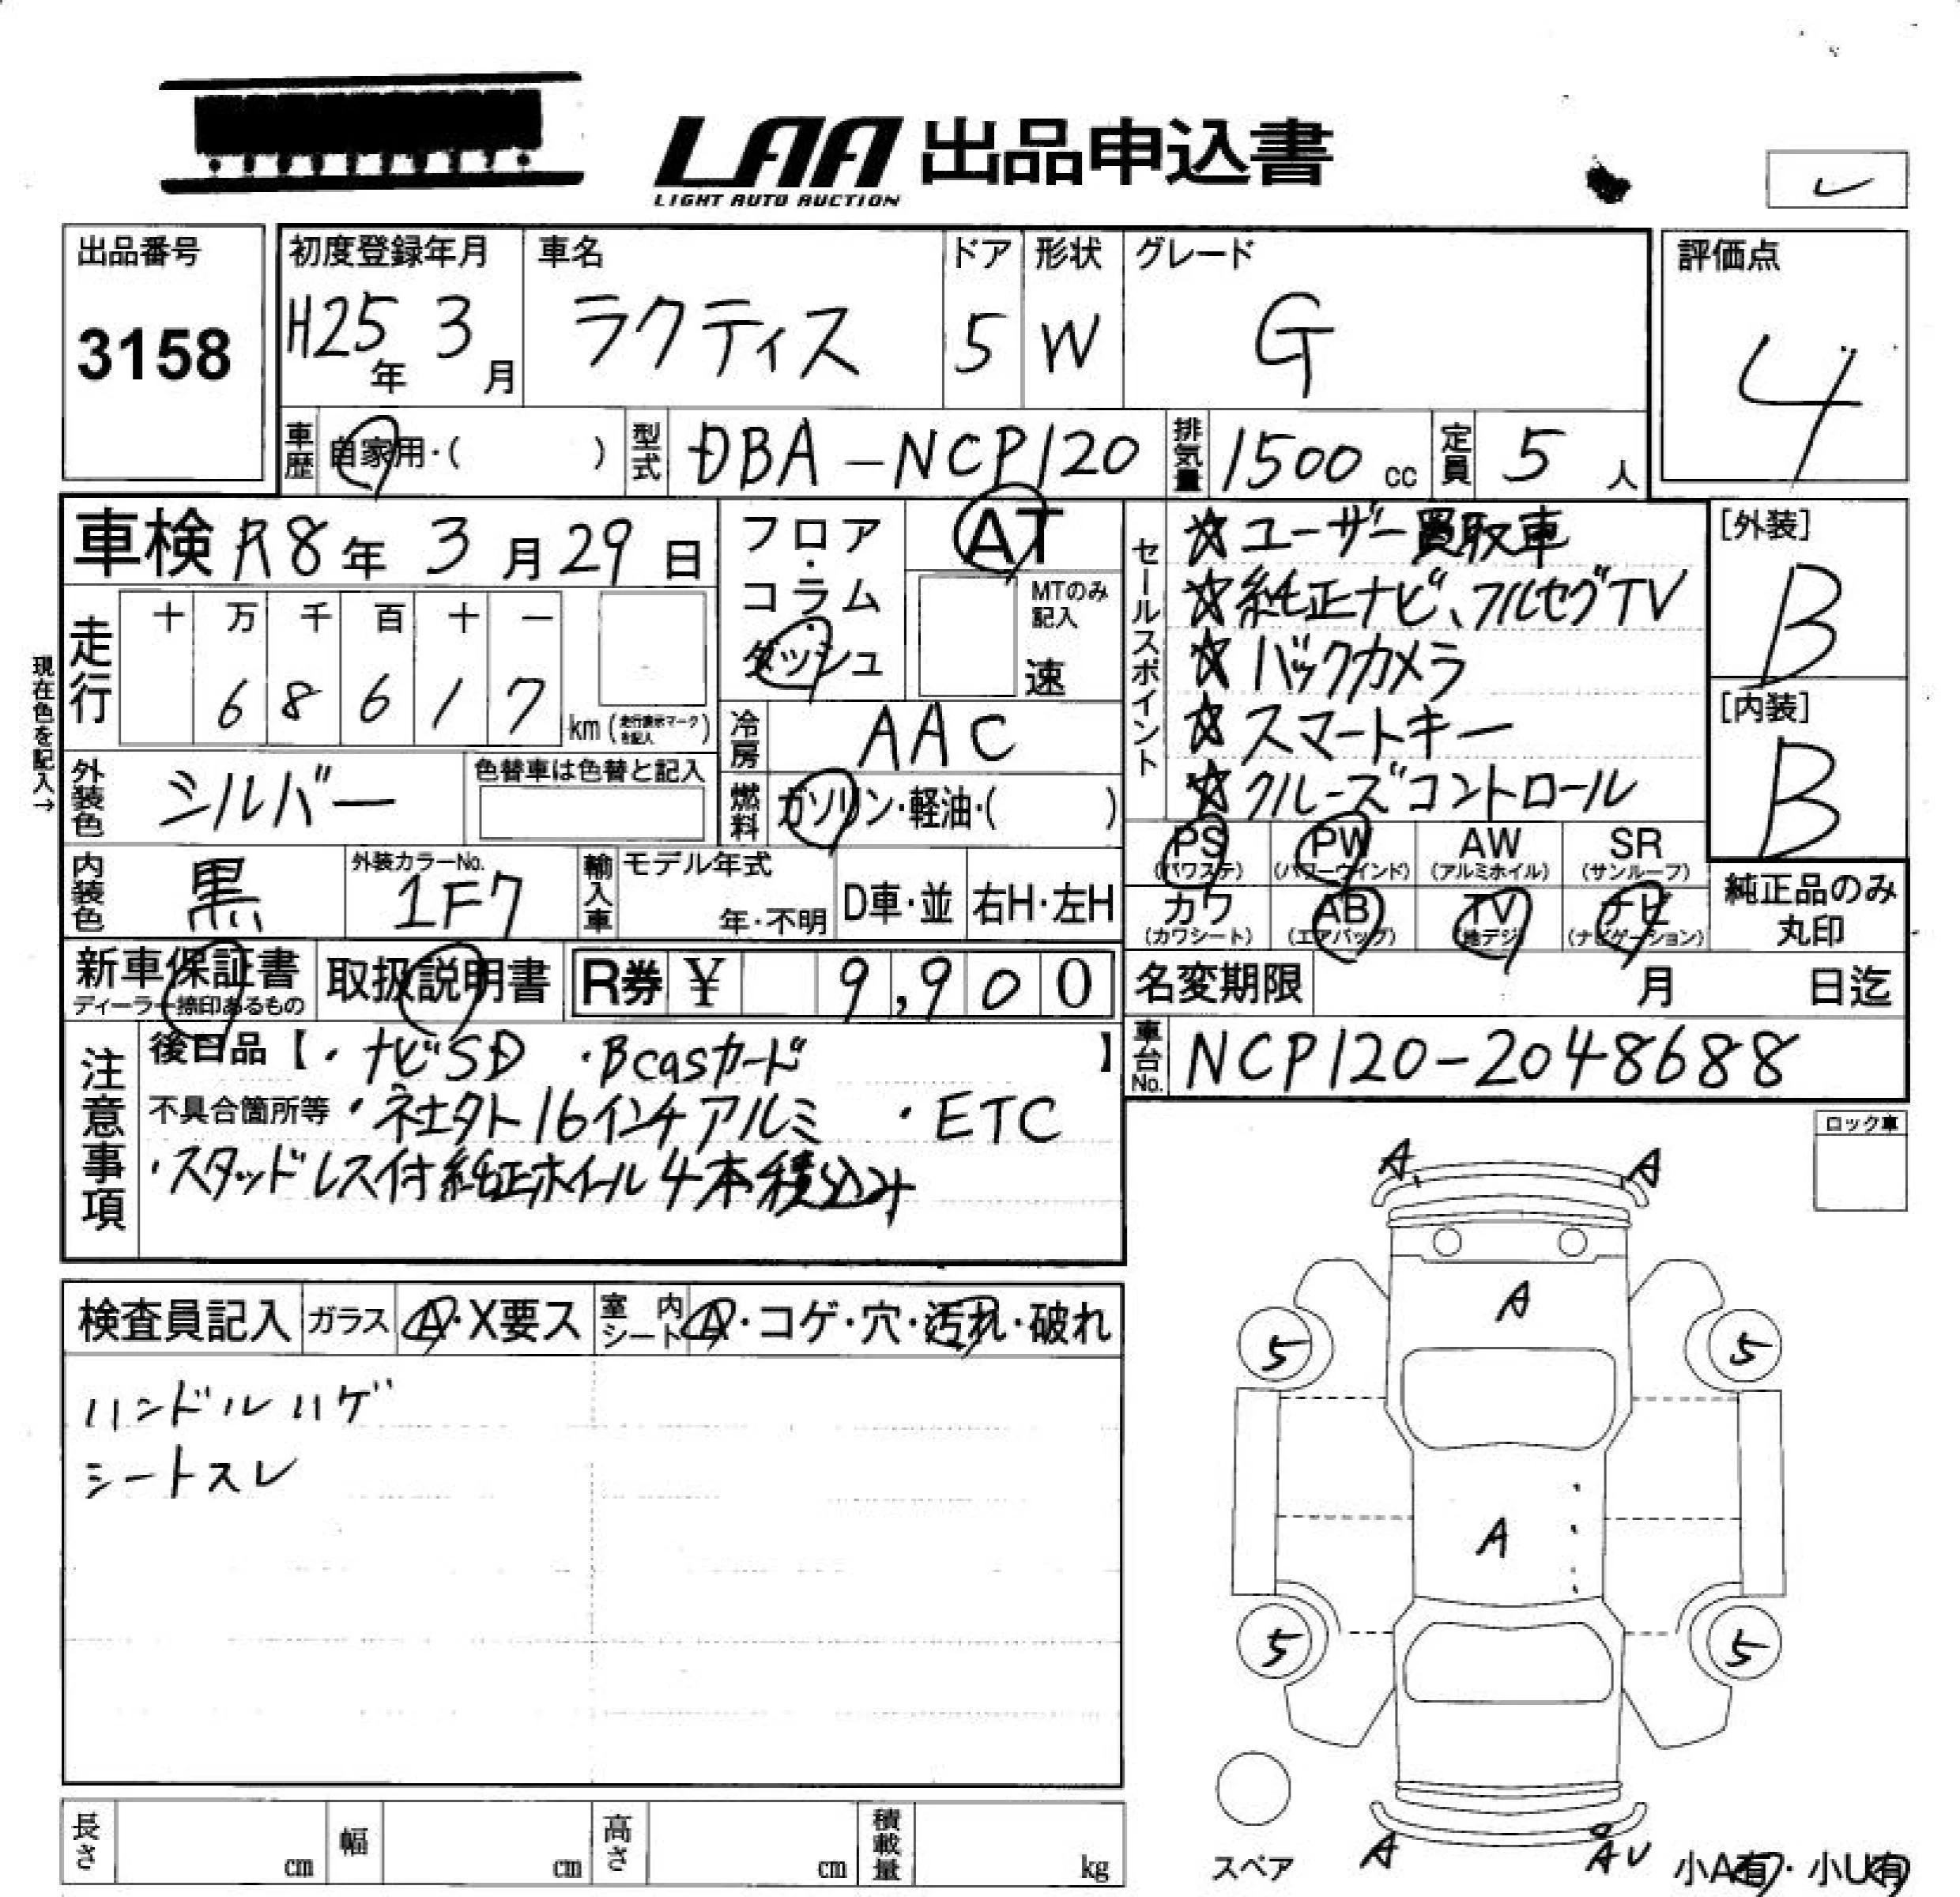 LAA 出品申込書
LIGHT AUTO AUCTION
出品番号
3158
初度登録年月
H25年 3月
車名
ラクティス
ドア
5
形状
W
グレード
G
評価点
4
車歴 自家用・( )
型式 DBA-NCP120
排気量 1500 cc
定員 5 人
車検 R8年 3月 29日
フロア・コラム ダッシュ
AT
MTのみ記入
速
セールスポイント
☆ユーザー買取車
☆純正ナビ、フルセグTV
☆バックカメラ
☆スマートキー
☆クルーズコントロール
[外装]
B
[内装]
B
現在色を記入→
走行
十 万 千 百 十 一
6 8 6 1 7
km (走行表示マークを記入)
冷房 AAC
外装色 シルバー
色替車は色替と記入
燃料 ガソリン・軽油・( )
PS (パワステ)
PW (パワーウインド)
AW (アルミホイル)
SR (サンルーフ)
カワ (カワシート)
AB (エアバッグ)
TV (地デジ)
ナビ (ナビゲーション)
純正品のみ丸印
内装色 黒
外装カラーNo.
1F7
輸入車
モデル年式
年・不明
D車・並
右H・左H
新車保証書
ディーラー捺印あるもの
取扱説明書
R券 ¥ 9,900
名変期限 月 日迄
車台No. NCP120-2048688
注意事項
後日品【・ナビSD ・Bcasカード 】
不具合箇所等 ・ネエクト16インチアルミ ・ETC
・スタッドレス付純正ホイール4本積込み
ロック車
検査員記入
ガラス A・X要ス
室内シート A・コゲ・穴・汚れ・破れ
ハンドルハゲ
シートスレ
A A
A
5 5
A
5 5
スペア
A AU
小A有・小U有
長さ cm
幅 cm
高さ cm
積載量 kg